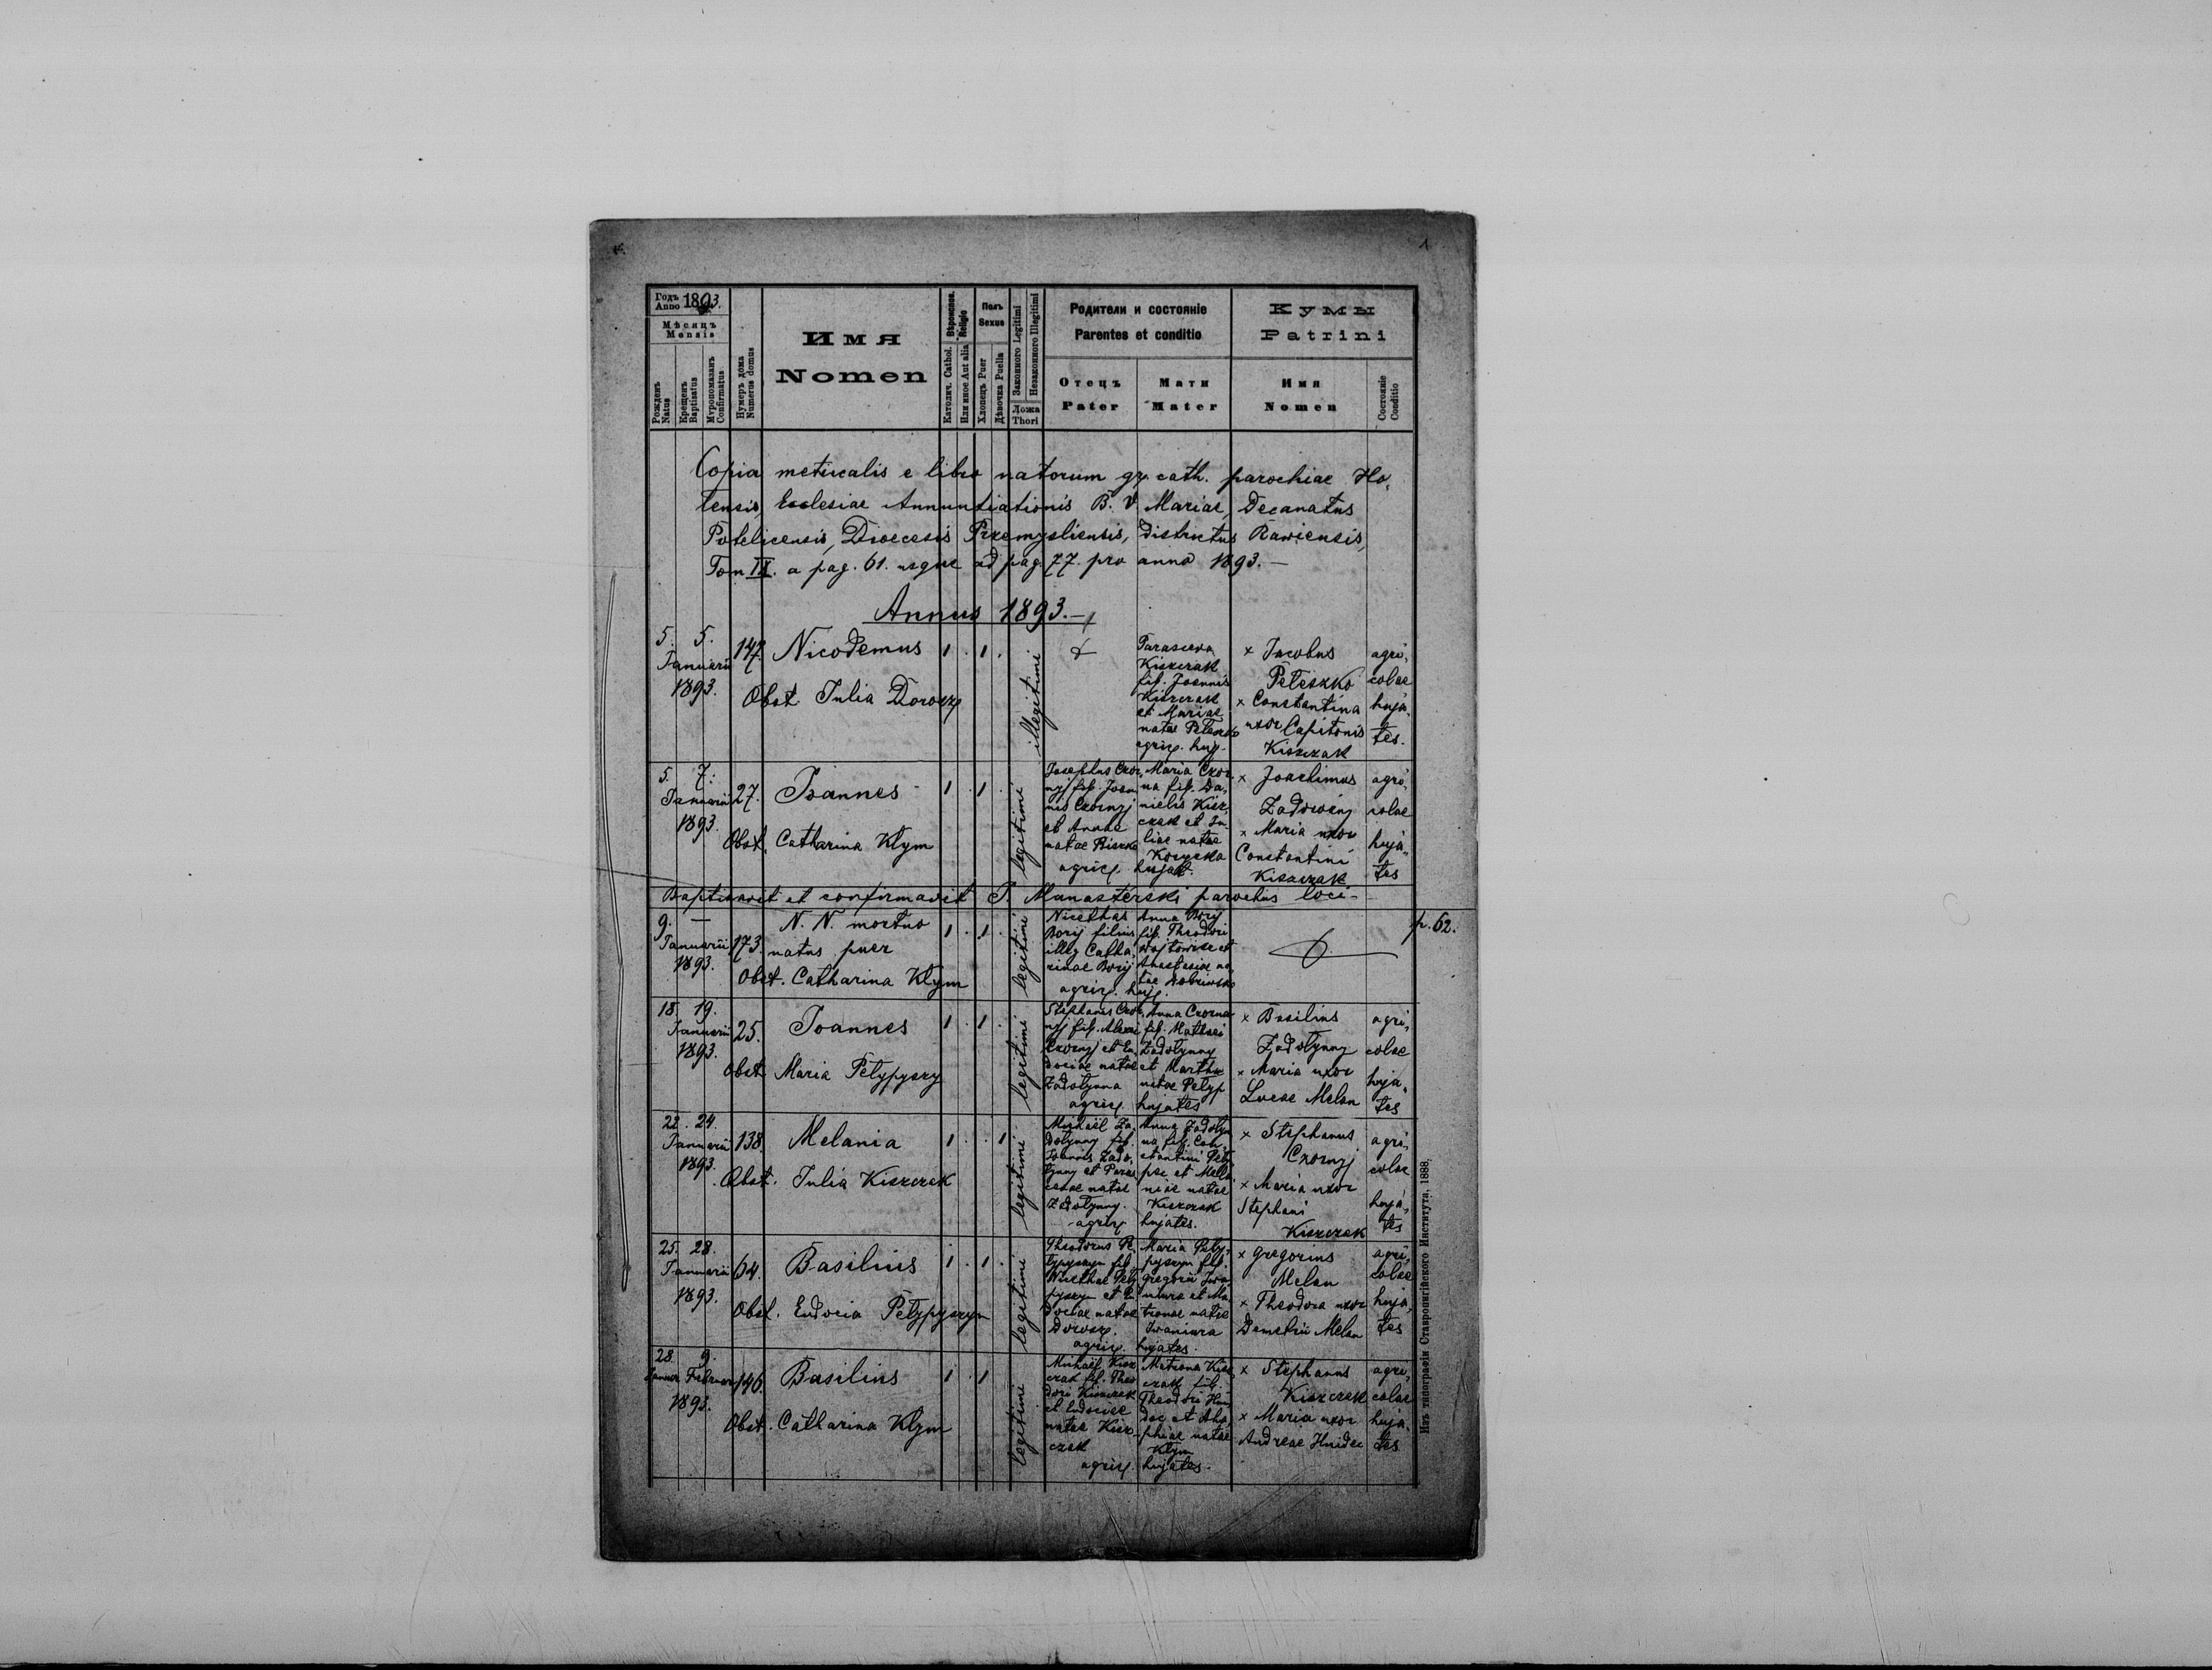 1
Годъ Anno 1893.
Мѣсяцъ
Mensis
Рожденъ Natus
Крещенъ Baptisatus
Мѵропомазанъ Confirmatus
Нумеръ дома Numerus domus
Имя
Nomen
Вѣроисповѣд. Religio
Католич. Cathol.
Или иное Aut alia
Полъ
Sexus
Хлопецъ Puer
Дѣвочка Puella
Законного Legitimi
Незаконного Illegitimi
Ложа
Thori
Родители и состоянiе
Parentes et conditio
Отецъ
Pater
Мати
Mater
Кумы
Patrini
Имя
Nomen
Состоянiе Conditio
Copia metricalis e libro natorum gr. cath. parochiae Ho,
lensis, Ecclesiae Annuntiationis B. V. Mariae, Decanatus
Potelicensis, Dioecesis Przemysliensis, districtus Rawiensis,
Tom IX. a pag. 61. usque ad pag. 77. pro anno 1893.—
Annus 1893.—
5. 5.
Januarii
1893.
147.
Nicodemus
1 . 1 .
Obst. Julia Dorosz
illegitimi
Parasceva
Kiszczak
fil. Joannis
Kiszczak
et Mariae
natae Peteszko
agric. huj.
x Jacobus
Peteszko
x Constantina
uxor Capitonis
Kiszczak
agri,
colae
huja,
tes.
5. 7.
Januarii
1893.
27.
Joannes
1 . 1 .
Obst. Catharina Klym
legitimi
Josephus Czor,
nyj fil. Joan,
nis Czornyj
et Annae
natae
agric.
Maria Czor,
na fil. Da,
nielis Kisz,
czak et Ju,
liae natae
hujat.
x Joachimus
x Maria uxor
Constantini
Kiszczak
agri,
colae
huja,
tes
Baptisavit et confirmavit P. Manasterski parochus loci.—
9. —
Januarii
1893.
173.
N. N. mortuo
natus puer
1 . 1 .
Obst. Catharina Klym
legitimi
Nicethas
Borij filius
illeg. Catha,
rinae Borij
agric.
Anna Borij
fil. Theodori
et
Anastasiae na,
tae
huj.
p. 62.
18. 19.
Januarii
1893.
25.
Joannes
1 . 1 .
Obst. Maria Petypyszyn
legitimi
Stephanus Czor,
nyj fil. Alexii
Czornyj et Eu,
dociae natae
Zadolynna
agric.
Anna Czorna
fil. Mathaei
Zadolynny
et Marthae
natae Petyp
hujates
x Basilius
Zadolynny
x Maria uxor
Lucae Melan
agri,
colae
huja,
tes
22. 24.
Januarii
1893.
138.
Melania
1 . . 1
Obst. Julia Kiszczak
legitimi
Michaël Za,
dolynny fil.
Joannis Zado,
lynny et Paras,
cevae natae
Zadolynny.
agric.
Anna Zadolyn
na fil. Con,
stantini
et Mela,
niae natae
Kiszczak
hujates.
x Stephanus
Czornyj
x Maria uxor
Stephani
Kiszczak
agri,
colae
huja,
tes
25. 28.
Januarii
1893.
64.
Basilius
1 . 1 .
Obst. Eudocia Petypyszyn
legitimi
Theodorus Pe,
typyszyn fil.
Nicethae Pety,
pyszyn et Eu,
dociae natae
Dorosz.
agric.
Maria Pety,
pyszyn fil.
Gregorii Iwa,
niura et Ma,
tronae natae
Iwaniura
hujates.
x Gregorius
Melan
x Theodora uxor
Demetrii Melan
agri,
colae
huja,
tes
28. 9.
Januar Februar
1893.
146.
Basilius
1 . 1
Obst. Catharina Klym
legitimi
Michaël Kisz,
czak fil. Theo,
dori Kiszczak
et Eudociae
natae Kisz,
czak
agric.
Matrona Kisz,
czak fil.
Theodori Hni,
dec et Aga,
phiae natae
Klym
hujates.
x Stephanus
Kiszczak
x Maria uxor
Andreae Hnidec
agri,
colae
huja,
tes
Изъ типографiи Ставропигiйского Института. 1888.